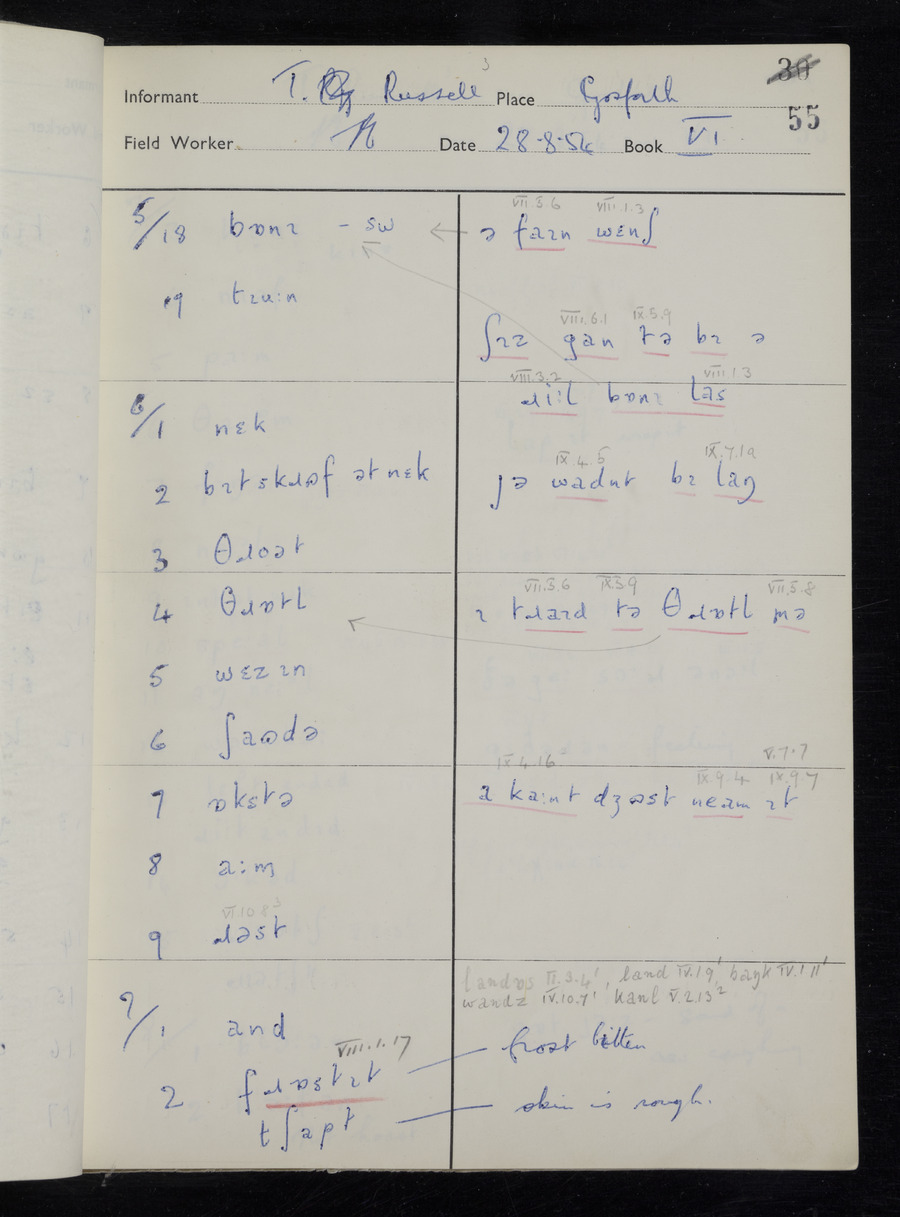 30
Informant T. Russell 3 Place Gosforth
55
Field Worker Date 28-8-54 Book VI
VII.3.6 VIII.1.3
5/18 bɒnɪ – sw ə faɪn wɛnʃ
19
VIII.6.1 IX.5.9
ʃɪz gan tə bɪ ə
VIII.3.2 VIII.1.3
ɹiːl bɒnɪ las
6/1 nɛk
IX.4.5 IX.7.1a
2 bɪt skɹɷf ət nɛk jə wadnt bɪ laŋ
3 θɹoət
VII.3.6 IX.3.9 VII.5.8
4 θɹɒtl ɪ tɹaɪd tə θɹɒtl mə
5 wɛzɪn
6 ʃaɷdə
IX.4.16 V.7.7
IX.9.4 IX.9.7
7 ɒkstə a kaːnt dʒɷst neəm ɪt
8 aːm
VI.10.8 3
9 ɹəst
land IV.1.9 baŋk IV.1.11
wandz IV.10.7 kanl V.2.13 2
7/1 and
VIII.1.17
2 fɹɒstɪt frost bitten
tʃapt skin is rough.